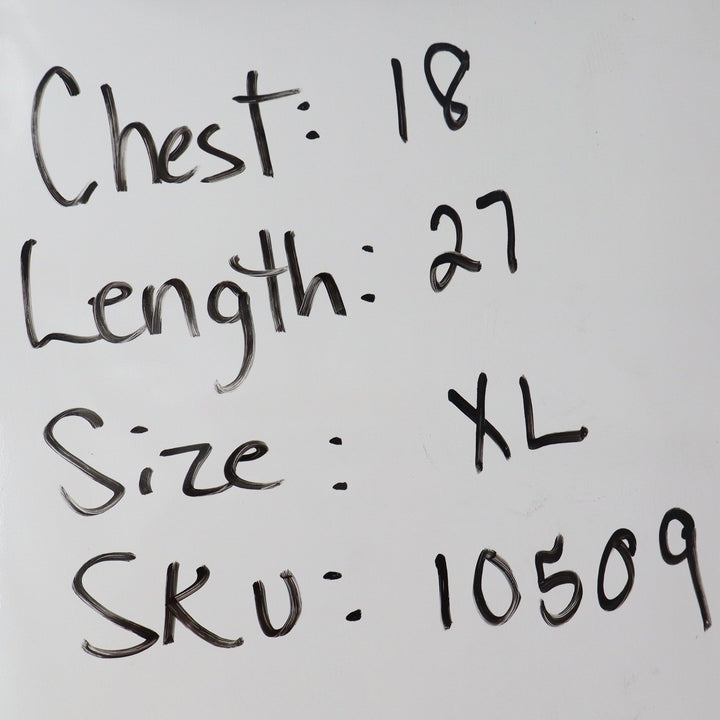 Chest: 18
Length: 27
Size: XL
SKU: 10509